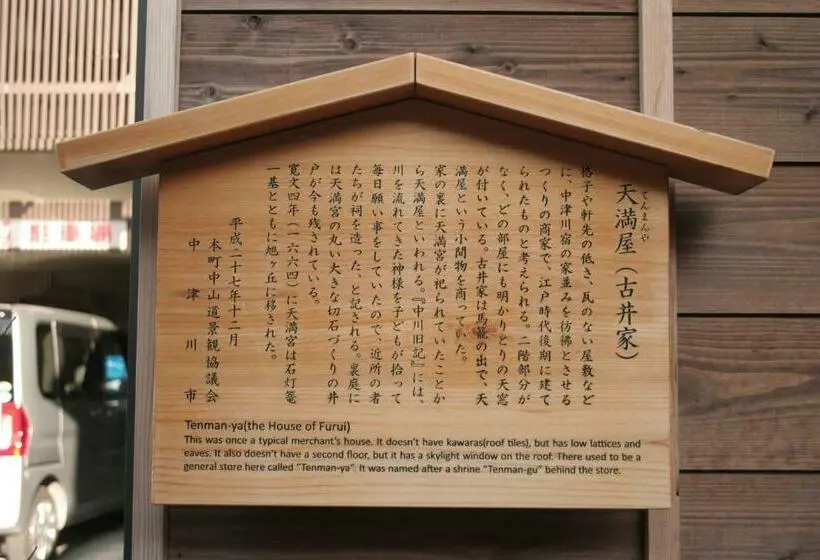 てんまんや
天満屋(古井家)
格子や軒先の低さ、瓦のない屋敷など
に、中津川宿の家並みを彷彿とさせる
つくりの商家で、江戸時代後期に建て
られたものと考えられる。二階部分が
なく、どの部屋にも明かりとりの天窓
が付いている。古井家は馬籠の出で、天
満屋という小間物を商っていた。
家の裏に天満宮が祀られていたことか
ら天満屋といわれる。『中川旧記』には、
川を流れてきた神様を子どもが拾って
毎日願い事をしていたので、近所の者
たちが祠を造った、と記される。裏庭に
は天満宮の丸い大きな切石づくりの井
戸が今も残されている。
寛文四年(一六六四)に天満宮は石灯籠
一基とともに旭ヶ丘に移された。
平成二十七年十二月
本町中山道景観協議会
中津川市
Tenman-ya(the House of Furui)
This was once a typical merchant's house. It doesn't have kawaras(roof tiles), but has low lattices and
eaves. It also doesn't have a second floor, but it has a skylight window on the roof. There used to be a
general store here called "Tenman-ya". It was named after a shrine "Tenman-gu" behind the store.